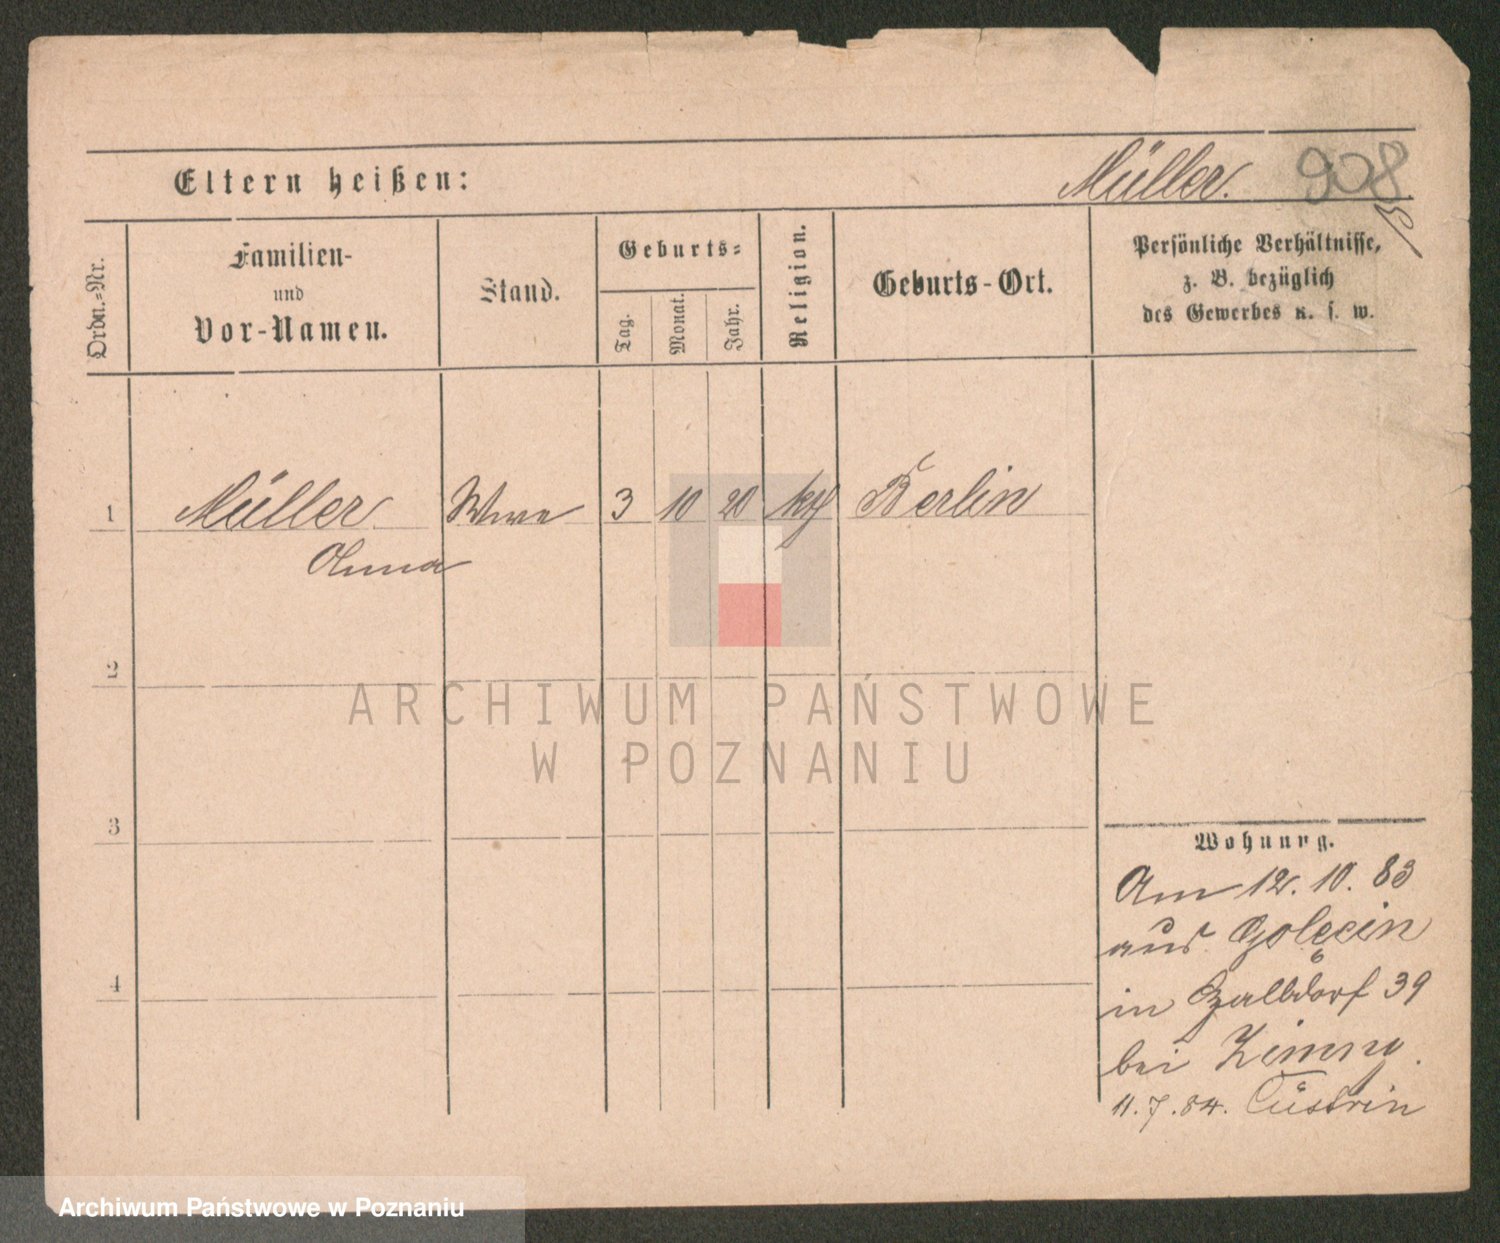 Eltern heißen: Müller. 908
Ordn.=Nr.
Familien-
und
Vor-Namen.
Stand.
Geburts=
Tag.
Monat.
Jahr.
Religion.
Geburts-Ort.
Persönliche Verhältnisse,
z. B. bezüglich
des Gewerbes u. s. w.
1 Müller Wwe 3 10 20 Berlin
Anna
2
ARCHIWUM PAŃSTWOWE
W POZNANIU
3
Wohnung.
Am 12. 10. 83
aus Golęcin
in 39
bei
4
11. 7. 84. Cüstrin
Archiwum Państwowe w Poznaniu